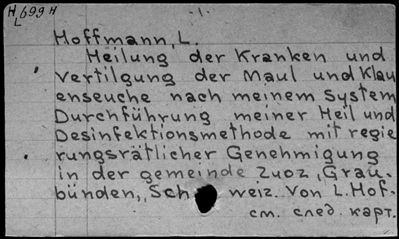 H/L 699 H
-1-
Hoffmann, L.
Heilung der Kranken und
Vertilgung der Maul und Klau
enseuche nach meinem System
Durchführung meiner Heil und
Desinfektionsmethode mit regie
rungsrätlicher Genehmigung
in der gemeinde Zuoz, Grau-
bünden, Sch weiz. Von L. Hof-
см. след. карт.